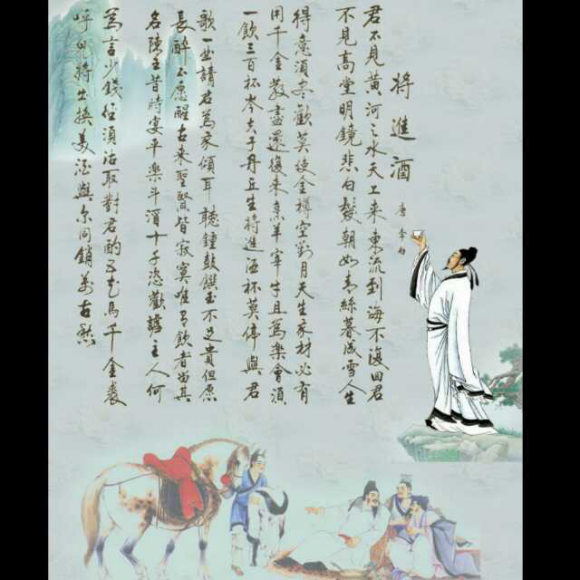 將進酒
唐 李白
君不見黃河之水天上來東流到海不復回君
不見高堂明鏡悲白髮朝如青絲暮成雪人生
得意須盡歡莫使金樽空對月天生我材必有
用千金散盡還復來烹羊宰牛且為樂會須
一飲三百杯岑夫子丹丘生將進酒杯莫停與君
歌一曲請君為我傾耳聽鐘鼓饌玉不足貴但願
長醉不願醒古來聖賢皆寂寞唯有飲者留其
名陳王昔時宴平樂斗酒十千恣歡謔主人何
為言少錢徑須沽取對君酌五花馬千金裘
呼兒將出換美酒與爾同銷萬古愁